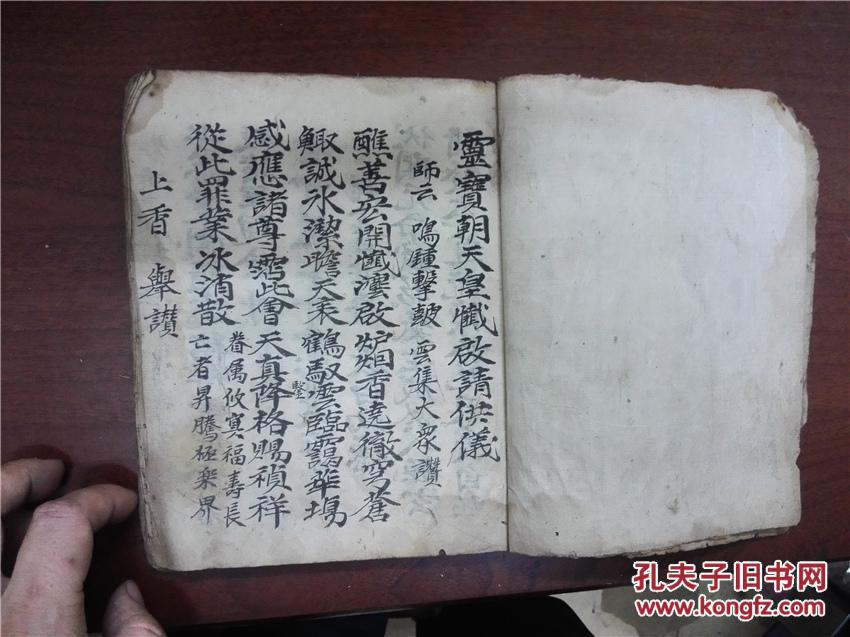 靈寶朝天皇懺啟請供儀
師云 鳴鐘擊皷 雲集大眾讚
醮善宏開懺瀼啟 炉焄香遶徹穹蒼
鯫誠氷潔瞻天表 鶴馭雲臨靄華場
鑒
感應諸尊霑此會 天真降格賜禎祥
從此罪業冰消散 眷属攸𡨋福壽長
亡者昇騰極楽界
上香 舉讃
孔夫子旧书网
www.kongfz.com